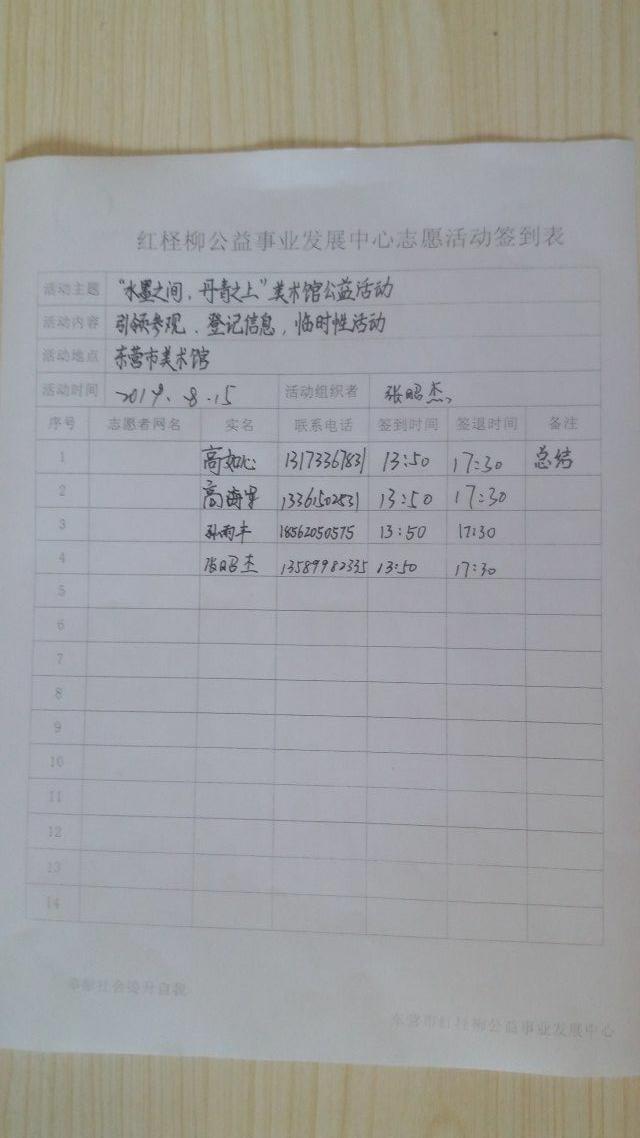 红柽柳公益事业发展中心志愿活动签到表
活动主题 “水墨之间，丹青之上”美术馆公益活动
活动内容 引领参观、登记信息，临时性活动
活动地点 东营市美术馆
活动时间 2019.8.15 活动组织者 张昭杰
序号 志愿者网名 实名 联系电话 签到时间 签退时间 备注
1 高如心 13173367831 13:50 17:30 总结
2 高海宇 13361502531 13:50 17:30
3 孙雨丰 18562050575 13:50 17:30
4 张昭杰 13589982335 13:50 17:30
5
6
7
8
9
10
11
12
13
14
奉献社会提升自我
东营市红柽柳公益事业发展中心